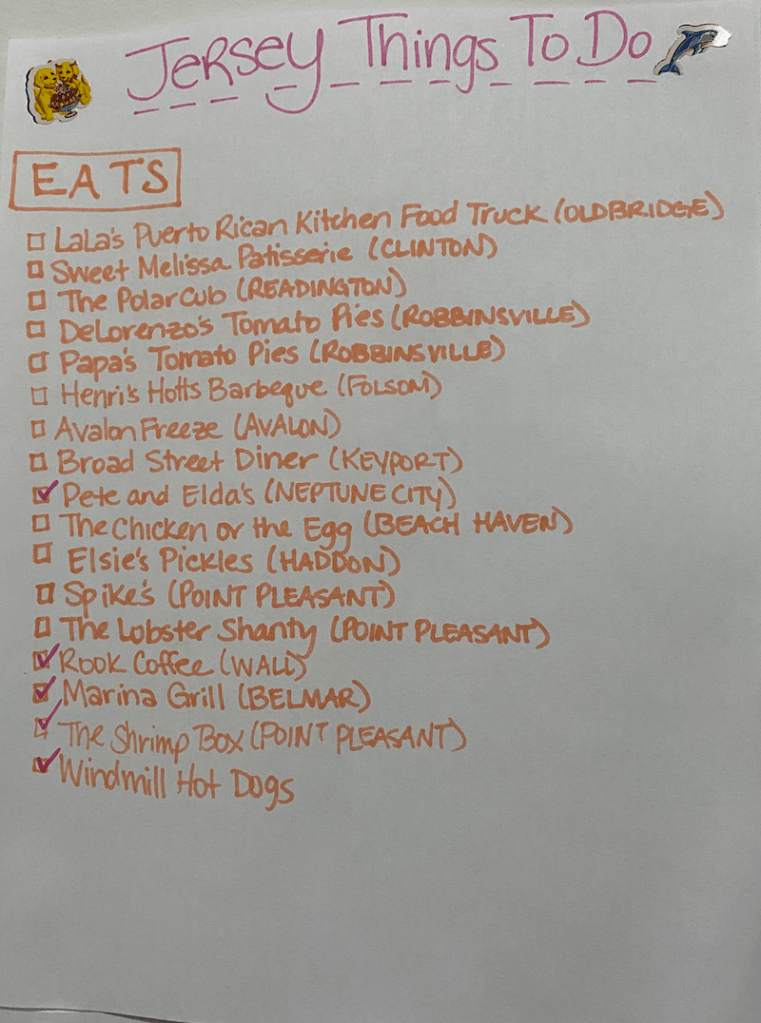 Jersey Things To Do
EATS
LaLa's Puerto Rican Kitchen Food Truck (OLDBRIDGE)
Sweet Melissa Patisserie (CLINTON)
The Polar Cub (READINGTON)
DeLorenzo's Tomato Pies (ROBBINSVILLE)
Papa's Tomato Pies (ROBBINSVILLE)
Henri's Hotts Barbeque (FOLSOM)
Avalon Freeze (AVALON)
Broad Street Diner (KEYPORT)
Pete and Elda's (NEPTUNE CITY)
The Chicken or the Egg (BEACH HAVEN)
Elsie's Pickles (HADDON)
Spike's (POINT PLEASANT)
The Lobster Shanty (POINT PLEASANT)
Rook Coffee (WALL)
Marina Grill (BELMAR)
The Shrimp Box (POINT PLEASANT)
Windmill Hot Dogs